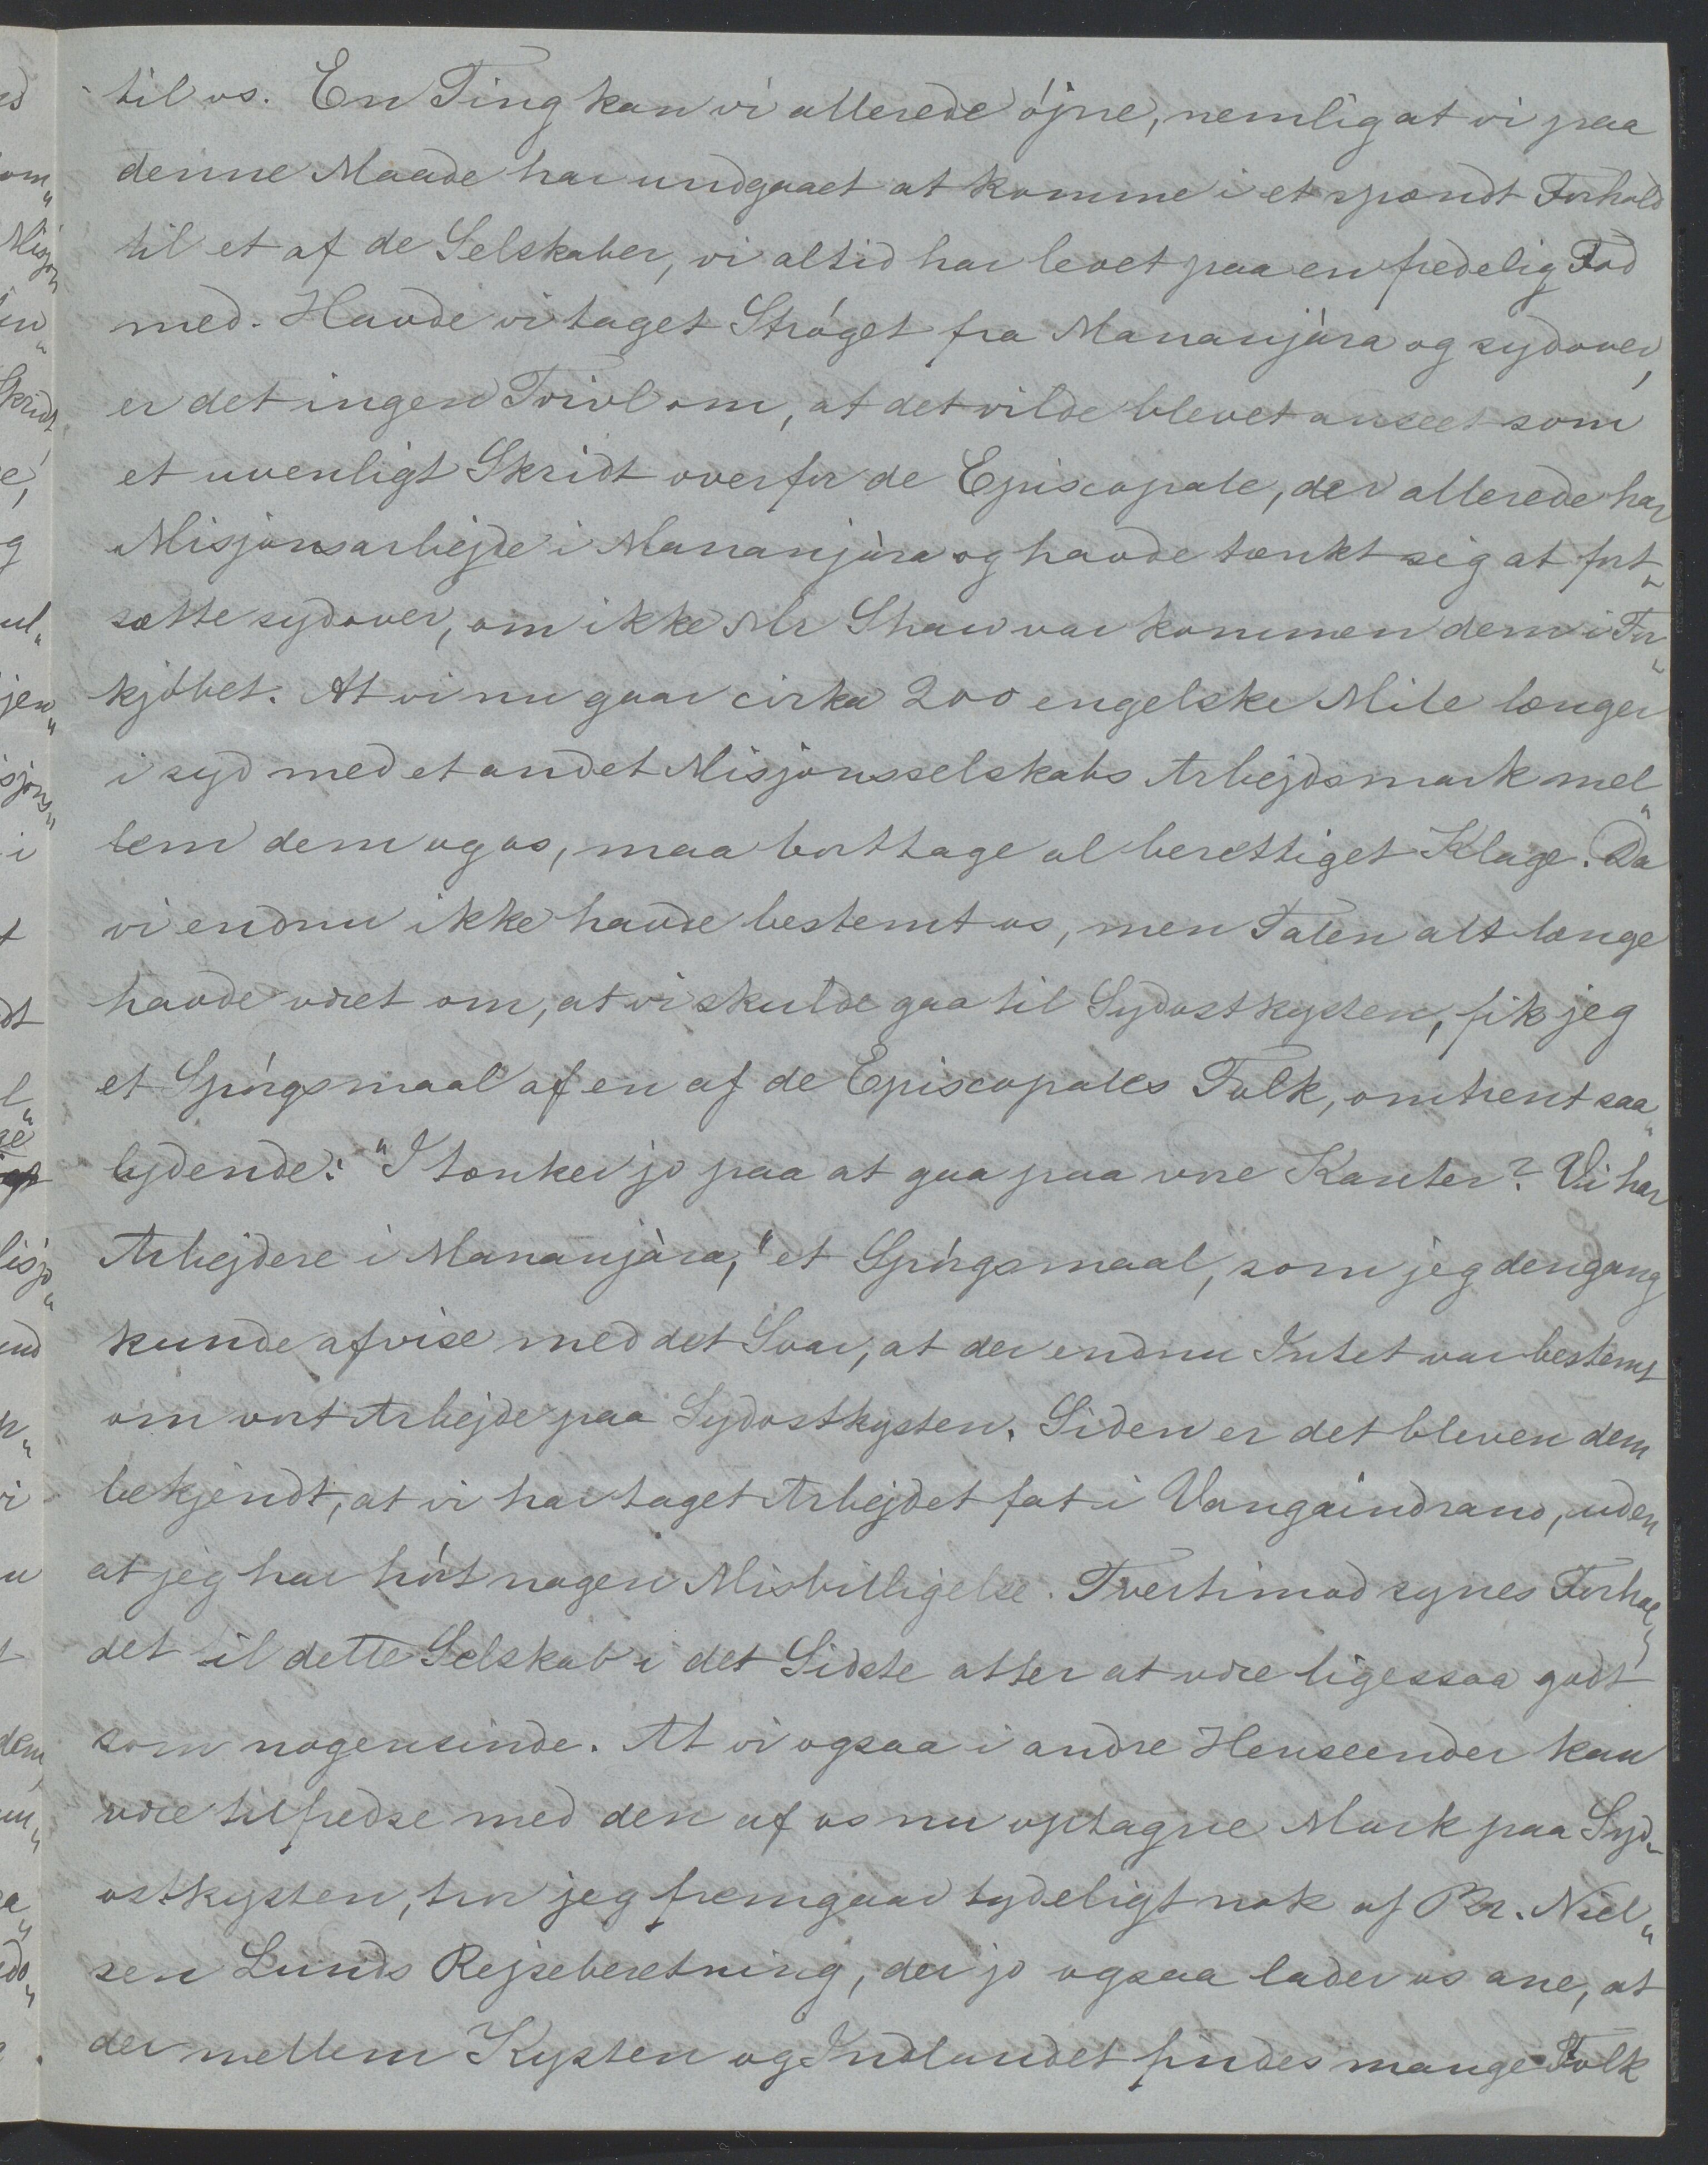 til os. En Ting kan vi allerede øjne, nemlig at vi paa
denne Maade har undgaaet at komme i et spændt Forhold
til et af de Selskaber, vi altid har levet paa en fredelig Fod
med. Havde vi taget Strøget fra Mananjàra og sydover,
er det ingen Tvivl om, at det vilde blevet anseet som
et uvenligt Skridt overfor de Episcopale, der allerede har
Misjonsarbejde i Mananjàra og havde tænkt sig at fort„
sætte sydover, om ikke Mr Shaw var kommen dem i For„
kjøbet. At vi nu gaar cirka 200 engelske Mile længer
i syd med et andet Misjonsselskabs Arbejdsmark mel„
lem dem og os, maa borttage al berettiget Klage. Da
vi endnu ikke havde bestemt os, men Talen alt længe
havde været om, at vi skulde gaa til Sydostkysten, fik jeg
et Spørgsmaal af en af de Episcopales Folk, omtrent saa„
lydende: "I tænker jo paa at gaa paa vore Kanter? Vi har
Arbejdere i Mananjàra," et Spørgsmaal, som jeg dengang
kunde afvise med det Svar, at der endnu Intet var bestemt
om vort Arbejde paa Sydostkysten. Siden er det bleven dem
bekjendt, at vi har taget Arbejdet fat i Vangaindrano, uden
at jeg har hørt nogen Misbilligelse. Tvertimod synes Forhol„
det til dette Selskab i det Sidste atter at være ligessaa godt
som nogensinde. At vi ogsaa i andre Henseender kan
være tilfredse med den af os nu optagne Mark paa Syd„
ostkysten, tror jeg fremgaar tydeligt nok af Br. Niel„
sen Lunds Rejseberetning, der jo ogsaa lader os ane, at
der mellem Kysten og Indlandet findes mange Folk